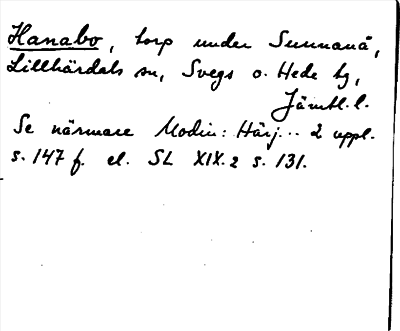 Hanabo, torp under Sunnanå,
Lillhärdals sn, Svegs o. Hede tg,
Jämtl. l.
Se närmare Modin: Härj... 2 uppl.
s. 147 f. el. SL XIX.2 s. 131.